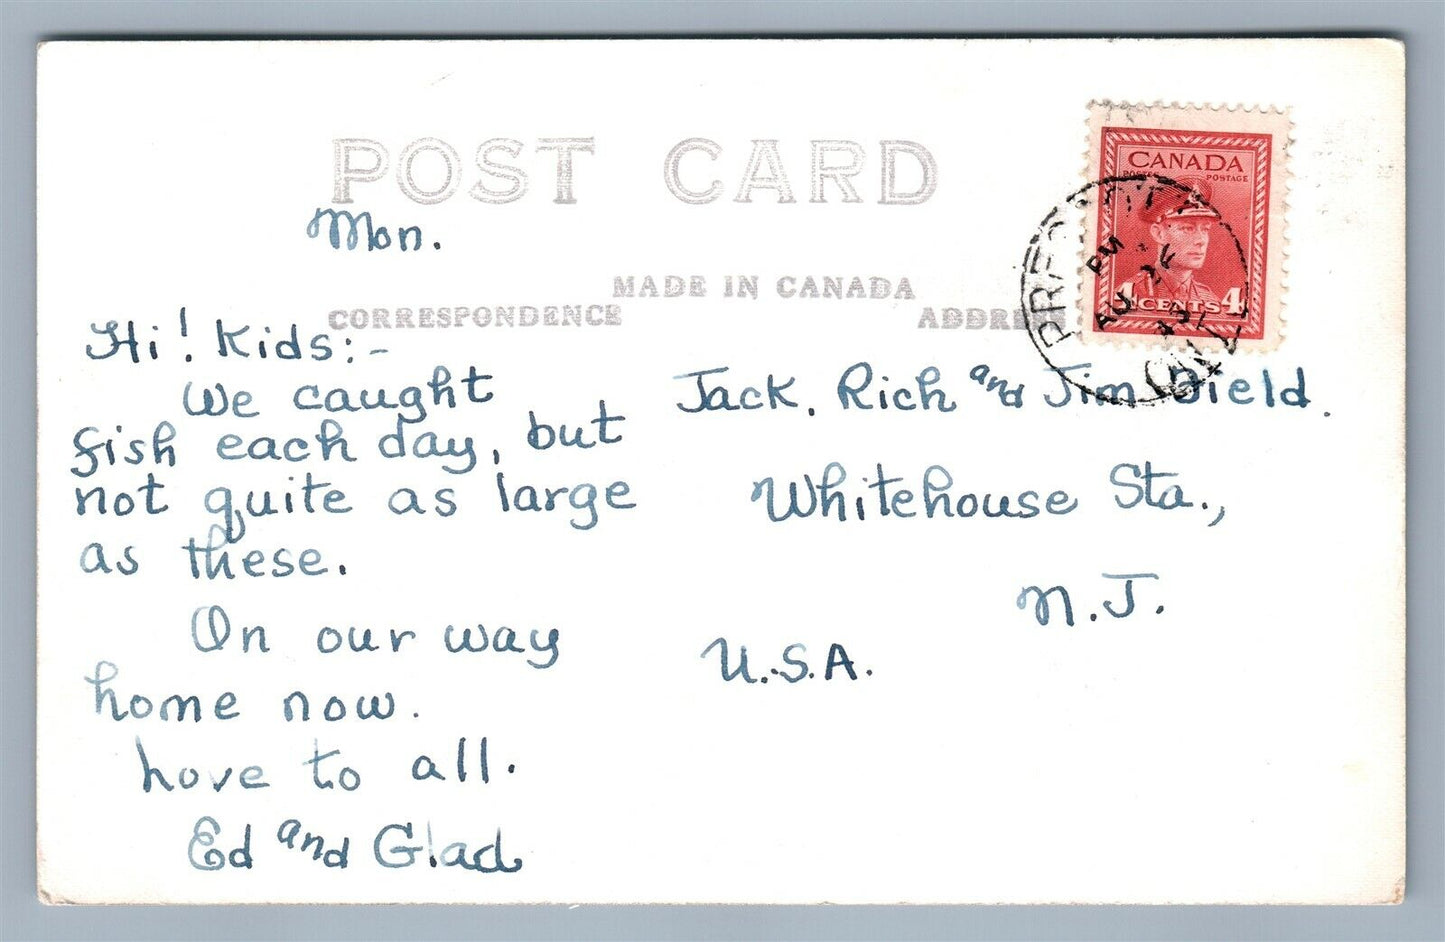 POST CARD
Mon.
MADE IN CANADA
CORRESPONDENCE
ADDRE
CANADA
POSTES POSTAGE
4 CENTS 4
PM
AU 26
ONT
Hi! Kids:-
We caught
fish each day, but
not quite as large
as these.
On our way
home now.
Love to all.
Ed and Glad
Jack, Rich and Jim Field.
Whitehouse Sta.,
N.J.
U.S.A.